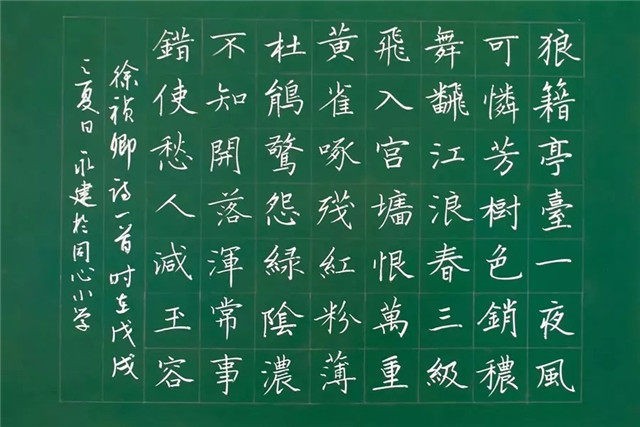 狼籍亭臺一夜風
可憐芳樹色銷穠
舞飜江浪春三級
飛入宮墻恨萬重
黃雀啄殘紅粉薄
杜鵑驚怨緑陰濃
不知開落渾常事
錯使愁人減玉容
徐祯卿诗一首时在戊戌
之夏日永建於同心小学